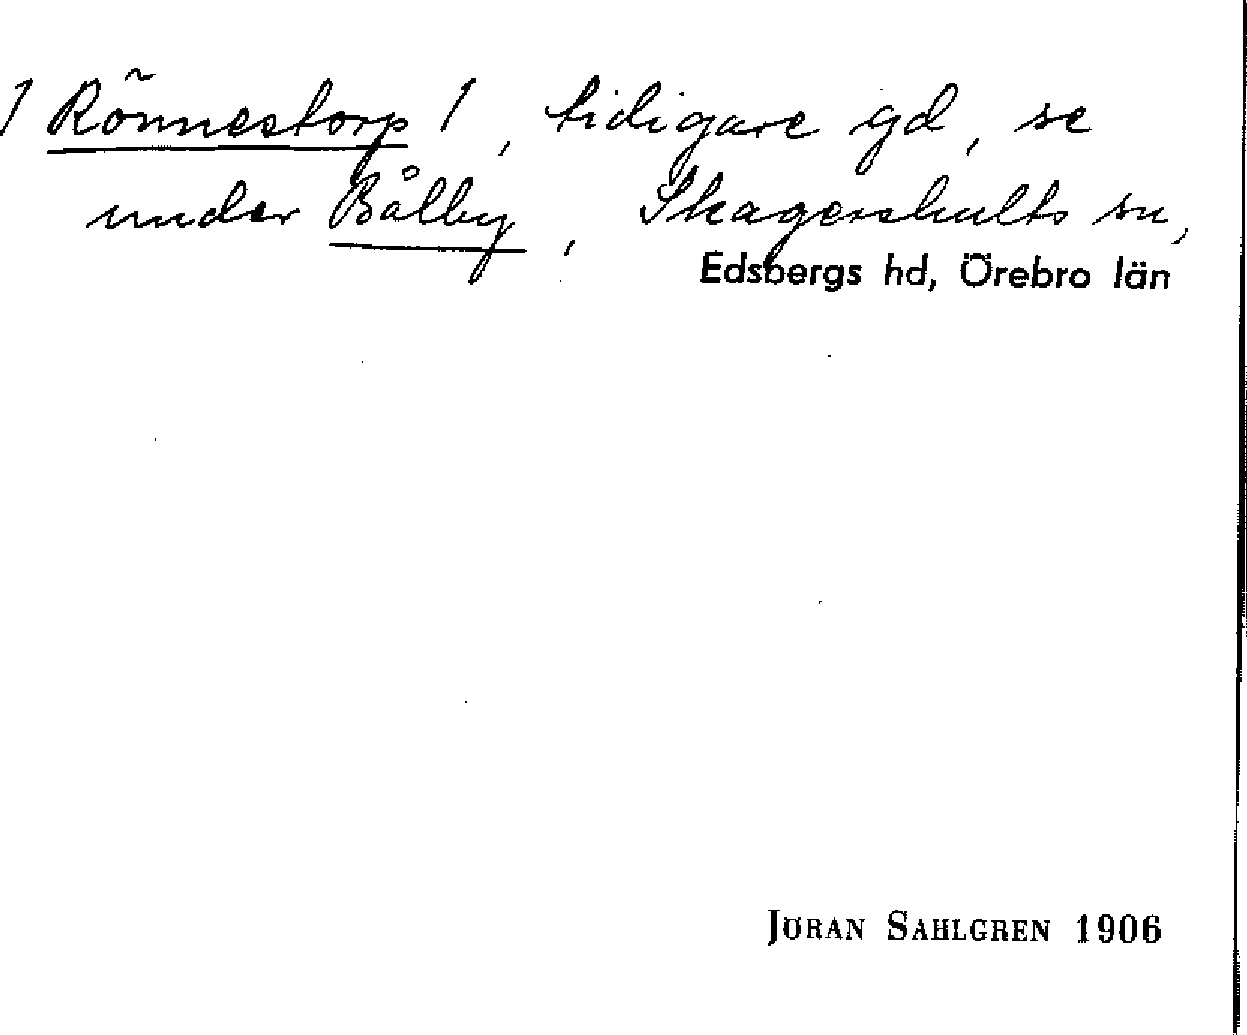 / Rönnestorp /, tidigare gd, se
under Bålby, Skagershults sn,
Edsbergs hd, Örebro län
JÖRAN SAHLGREN 1906